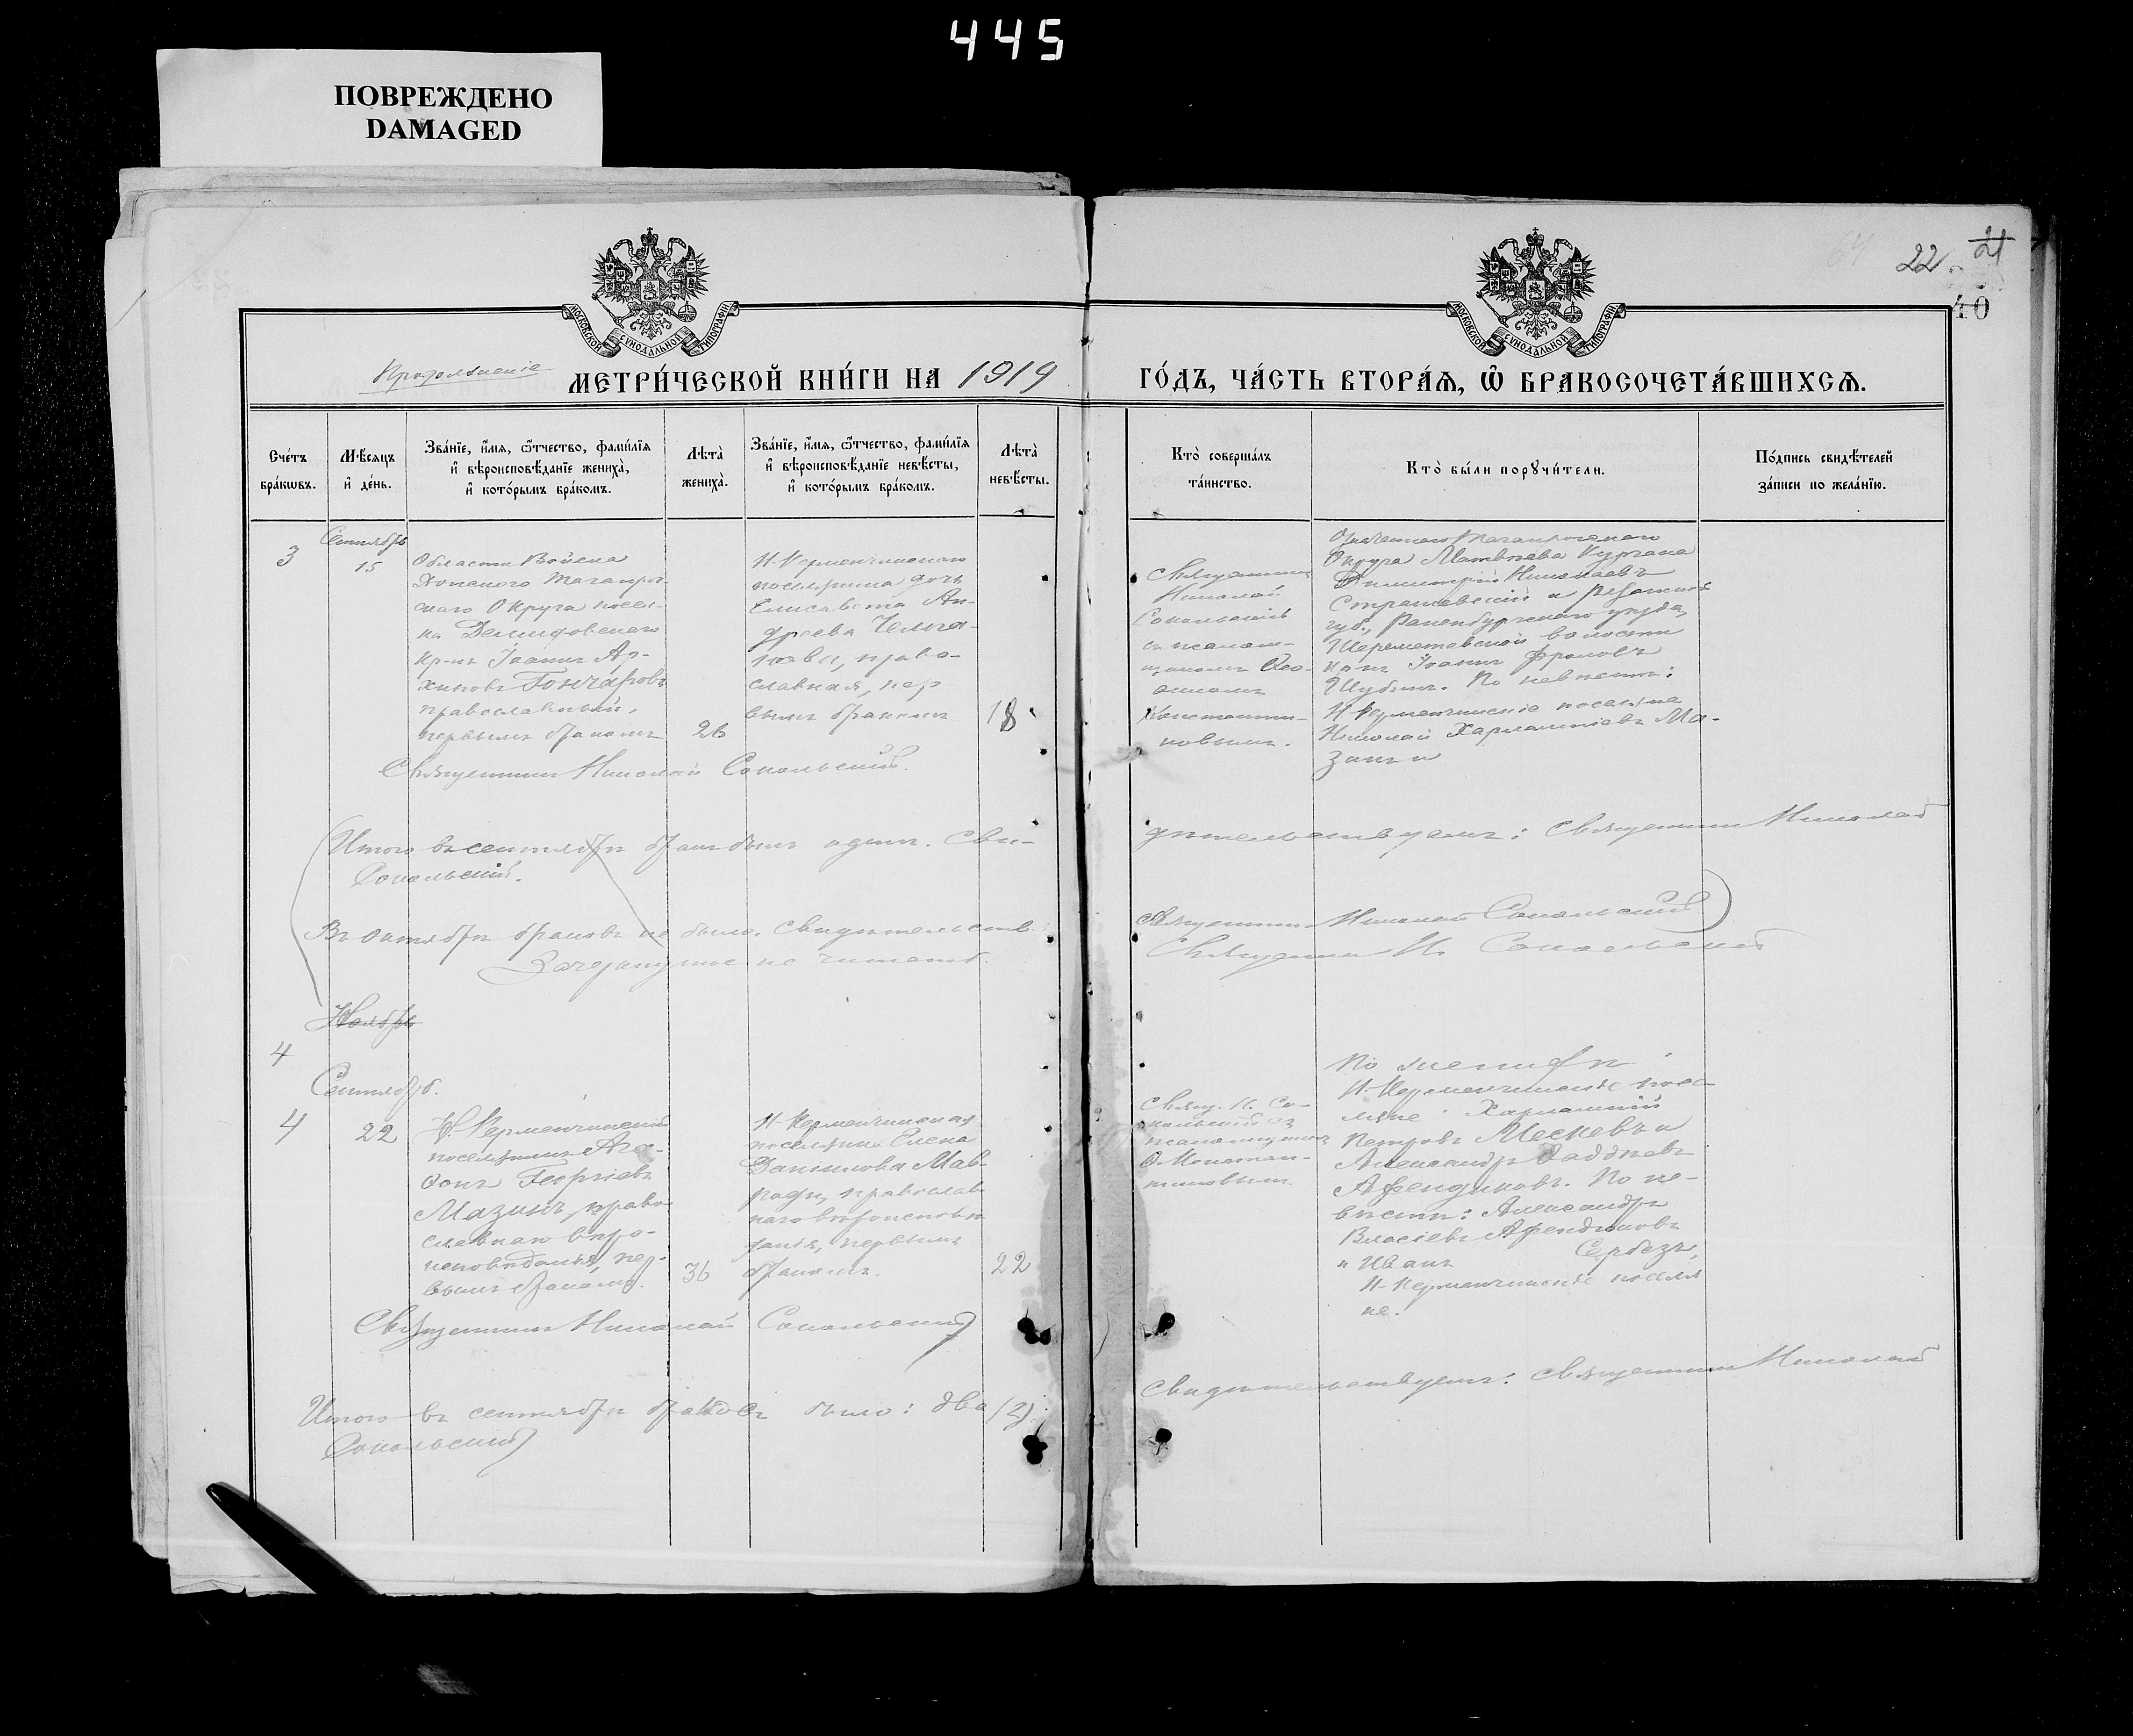 445
ПОВРЕЖДЕНО
DAMAGED
22 21
40
МОСКОВСКОЙ СУНОДАЛЬНОЙ ТИПОГРАФІИ
МОСКОВСКОЙ СУНОДАЛЬНОЙ ТИПОГРАФІИ
Продолженіе МЕТРИ́ЧЕСКОЙ КНИ́ГИ НА 1919 ГО́ДЪ, ЧА́СТЬ ВТОРА́Ѧ, Ѡ҆ БРАКОСОЧЕТА́ВШИХСѦ.
Сче́тъ
бра́кѡвъ.
Мѣ́сѧцъ
и҆ де́нь.
Зва́нїе, и҆́мѧ, ѻ҆́тчество, фами́лїѧ
и҆ вѣроисповѣ́данїе жениха̀,
и҆ кото́рымъ бра́комъ.
Лѣта̀
жениха̀.
Зва́нїе, и҆́мѧ, ѻ҆́тчество, фами́лїѧ
и҆ вѣроисповѣ́данїе невѣ́сты,
и҆ кото́рымъ бра́комъ.
Лѣта̀
невѣ́сты.
Кто̀ соверша́лъ
та́инство.
Кто̀ бы́ли порꙋчи́тели.
По́дпись свидѣ́телей
за́писи по жела́нїю.
3
Сентябрь
15
Области Войска
Донского Таганрог-
скаго Округа посел-
ка
кр-нъ Іоаннъ Ар-
хиповъ Гончаровъ
православный,
первымъ бракомъ
26
Н-Керменчикская
поселянина дочь
Елисавета Ан-
дреева
православная, пер
вымъ бракомъ
18
Священникъ
Николай
Сокольскій
съ псалом-
щикомъ Ѳео-
Константи-
новымъ.
Таганрогскаго
Округа Матвѣева Кургана
Димитрій Николаевъ
и Рязанской
губ., Раненбургскаго уѣзда,
волости
кр-нъ Іоаннъ Фроловъ
Шубинъ. По невѣстѣ:
Н-Керменчикскіе поселяне
Николай Харлампіевъ Ма-
зинъ и
Священникъ Николай Сокольскій.
Итого въ сентябрѣ бракъ былъ одинъ. Сви-
дѣтельствуемъ: Священникъ Николай
Сокольскій.
Въ октябрѣ браковъ не было. Свидѣтельств.
Священникъ Николай Сокольскій
Зачеркнутое не читать.
Священникъ Н. Сокольскій
Ноябрь
4
Сентябрь.
4
22
Н. Керменчикскій
поселянинъ Ага-
ѳонъ Георгіевъ
Мазинъ, право-
славнаго вѣро-
исповѣданія, пер-
вымъ бракомъ.
36
Н-Керменчикская
поселянка Елена
Даніилова Мав-
роди, православ
наго вѣроисповѣ
данія, первымъ
бракомъ.
22
Свящ. Н. Со-
кольскій съ
псаломщикомъ
Ѳ. Констан-
тиновымъ.
По женихѣ:
Н-Керменчикскіе посе-
ляне: Харлампій
Петровъ и
Александръ Ѳаддѣевъ
Афендиковъ. По не-
вѣстѣ: Александръ
Власіевъ Афендиковъ
и Иванъ Сербезъ,
Н-Керменчикскіе поселя
не.
Священникъ Николай Сокольскій
Итого въ сентябрѣ браковъ было: два (2).
Свидѣтельствуемъ: Священникъ Николай
Сокольскій